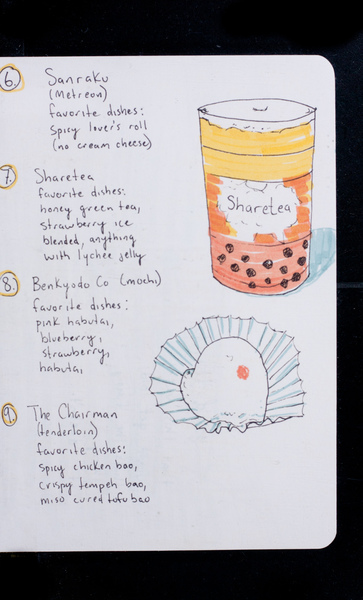 6. Sanraku
(Metreon)
favorite dishes:
spicy lover's roll
(no cream cheese)
7. Sharetea
favorite dishes:
honey green tea,
strawberry ice
blended, anything
with lychee jelly
Sharetea
8. Benkyodo Co (mochi)
favorite dishes:
pink habutai,
blueberry,
strawberry,
habutai
9. The Chairman
(tenderloin)
favorite dishes:
spicy chicken bao,
crispy tempeh bao,
miso cured tofu bao